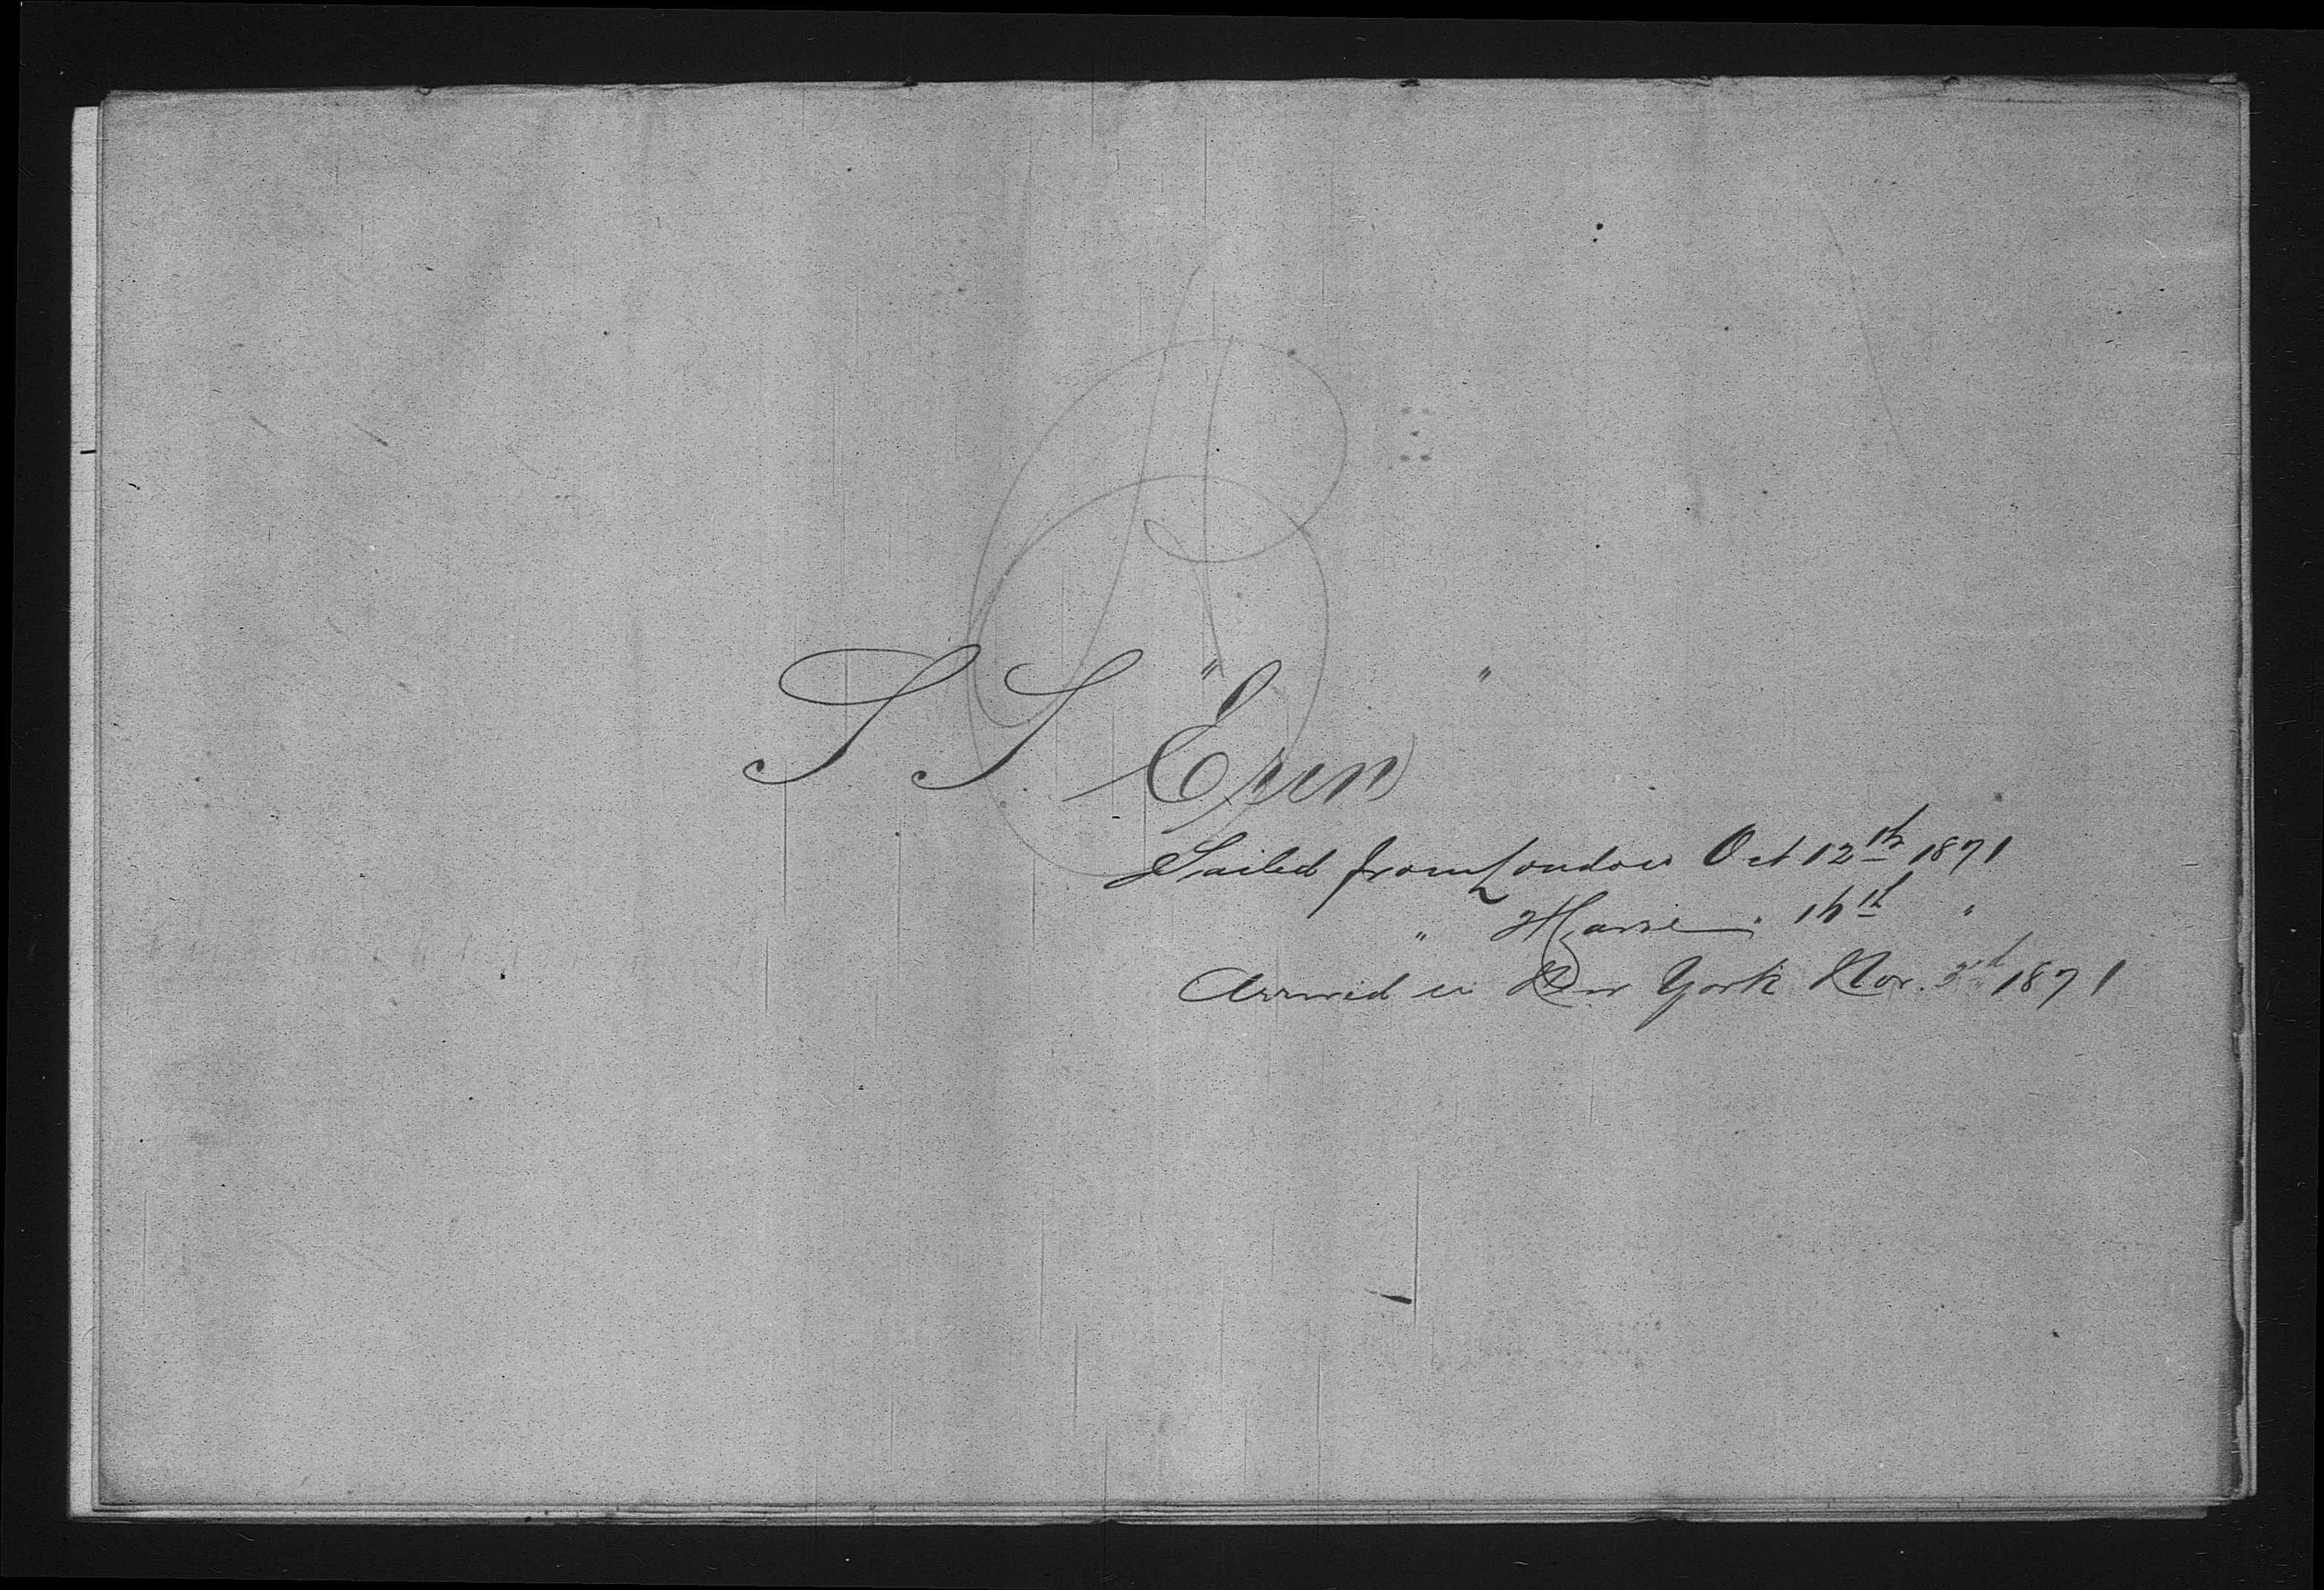 S. S. "Erin"
Sailed from London Oct 12th 1871
" Havre " 16th "
Arrived in New York Nov. 3rd 1871